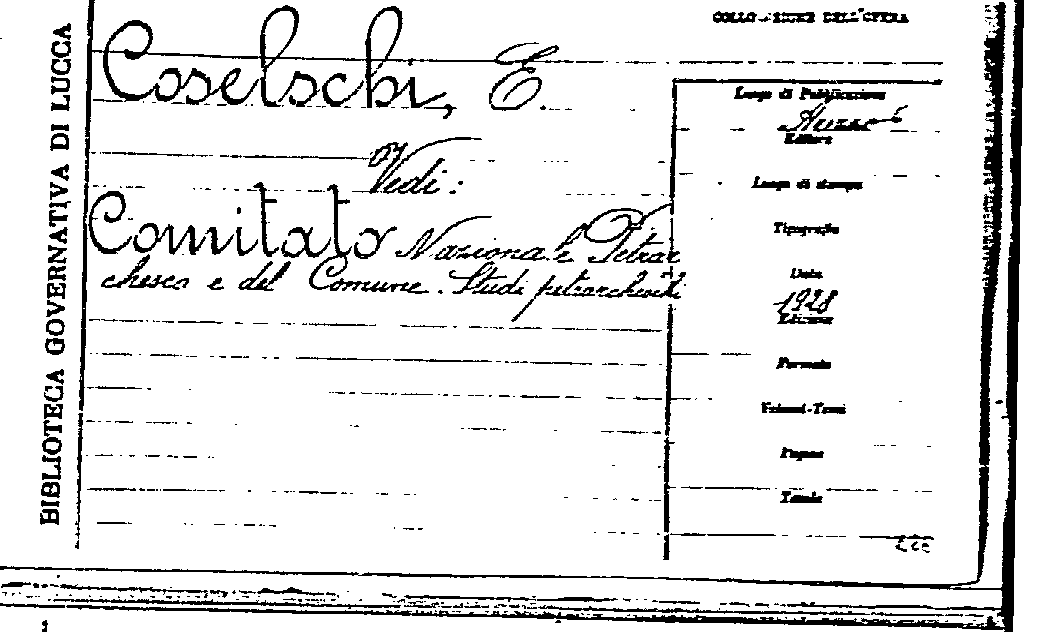 BIBLIOTECA GOVERNATIVA DI LUCCA
COLLOCAZIONE DELL'OPERA
Coselschi, E.
Vedi:
Comitato Nazionale Petrar
chesco e del Comune. Studi petrarcheschi
Luogo di Pubblicazione
Arezzo
Editore
Luogo di stampa
Tipografia
Data
1928
Edizione
Formato
Volumi-Tomi
Pagine
Tavole